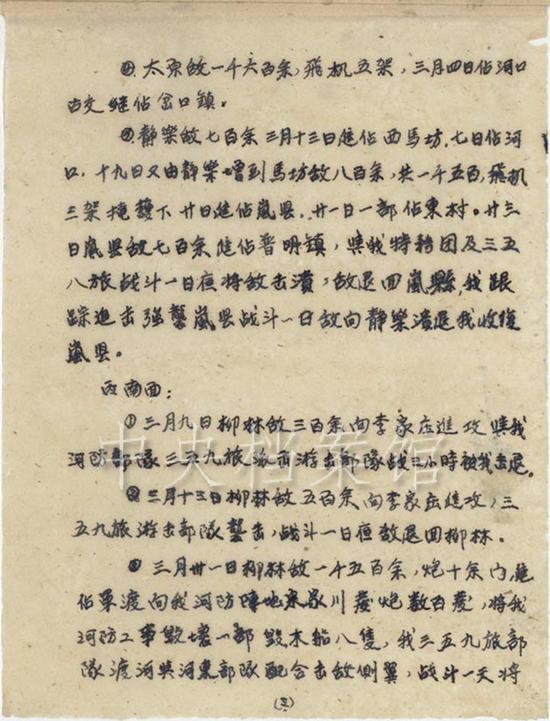 ④太原敌一千六百余,飛机五架,三月四日佔河口
古交継佔岔口鎮。
⑤静樂敌七百余三月十三日進佔西馬坊,七日佔河
口,十九日又由静樂增到馬坊敌八百余,共一千五百,飛机
三架掩護下廿日進佔嵐县,廿一日一部佔東村。廿三
日嵐县敌七百余進佔普明鎮,与我特務团及三五
八旅战斗一日夜将敌击潰,敌退回嵐縣,我跟
踪追击强襲嵐县战斗一日敌向静樂潰退我收復
嵐县。
西南面:
①三月九日柳林敌三百余向李家庄進攻与我
河防部隊三五九旅派击游击部隊战三小時被我击退。
②三月十三日柳林敌五百余向李家庄進攻,三
五九旅游击部隊襲击,战斗一日夜敌退回柳林。
③三月廿一日柳林敌一千五百余,炮十余门進
佔軍渡向我河防陣地宋家川發炮数百發,将我
河防工事毀壞一部毀木船八隻,我三五九旅部
隊渡河与河東部隊配合击敌側翼,战斗一天将
(三)
中央档案馆